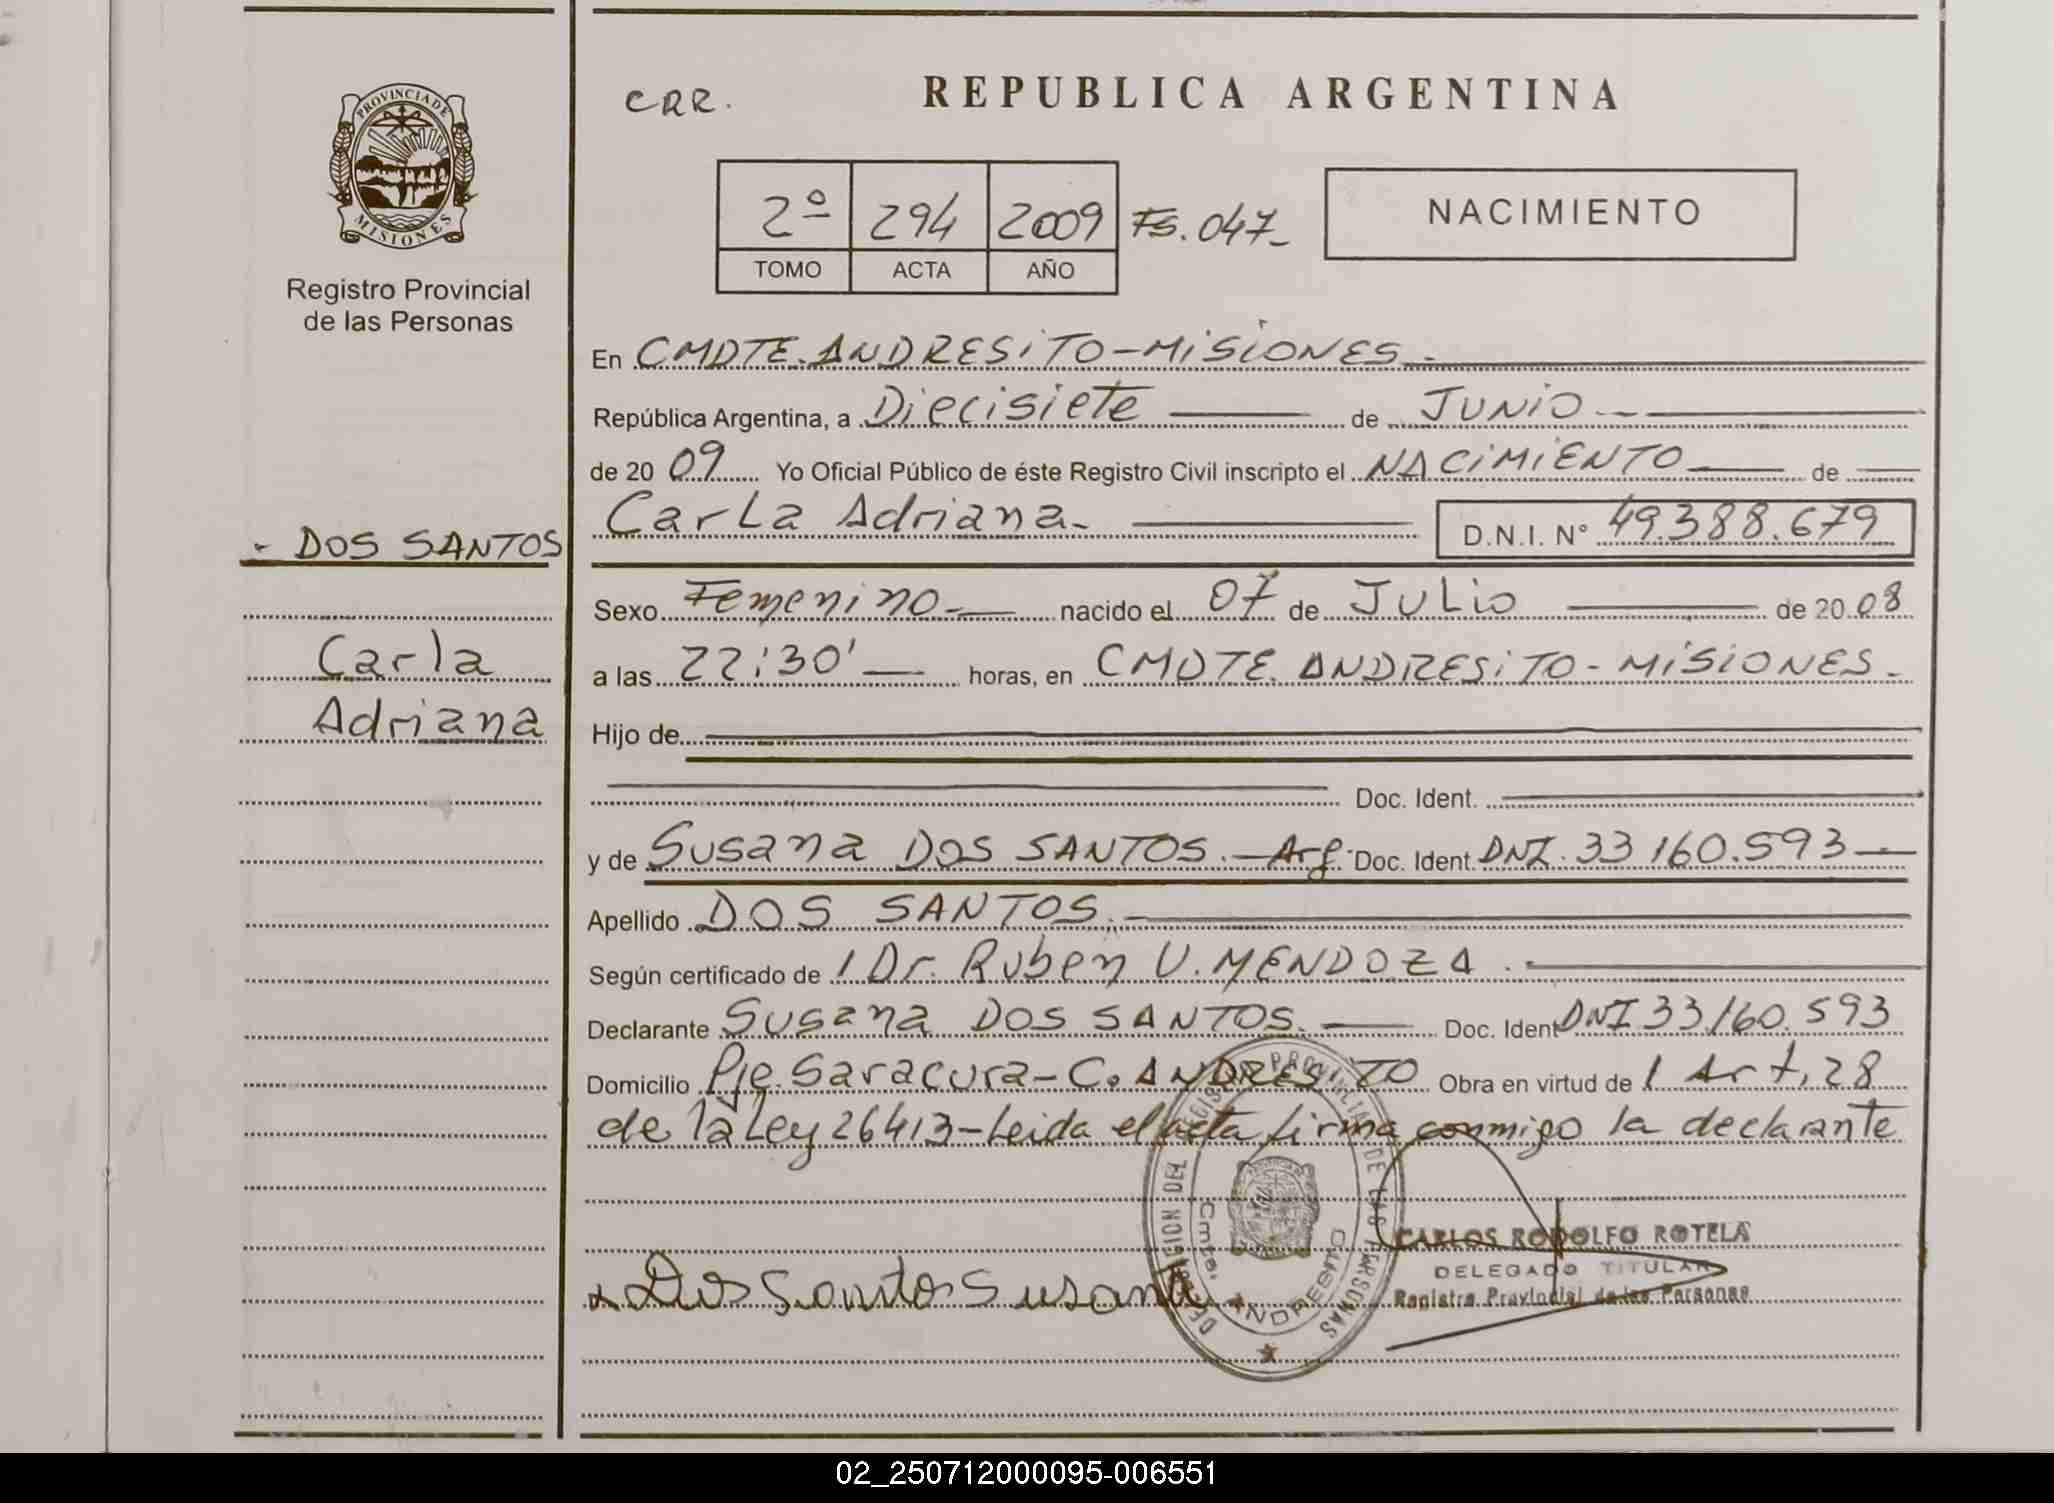 REPUBLICA ARGENTINA
CRR.
PROVINCIA DE
MISIONES
Registro Provincial
de las Personas
2º 294 2009 Fs. 047-
TOMO ACTA AÑO
NACIMIENTO
En CMDTE. ANDRESiTO-MiSiONES.-
República Argentina, a Diecisiete de JUNiO.-
de 20 09 Yo Oficial Público de éste Registro Civil inscripto el NACiMiENTO de
Carla Adriana- D.N.I. Nº 49.388.679
- DOS SANTOS
Carla
Adriana
Sexo Femenino.- nacido el 07 de JULio de 20 08
a las 22:30' horas, en CMDTE. ANDRESiTO-MiSiONES.-
Hijo de
Doc. Ident.
y de Susana DOS SANTOS.-Arg. Doc. Ident. DNI. 33 160.593-
Apellido DOS SANTOS.-
Según certificado de 1 Dr. Ruben U. MENDOZA.-
Declarante Susana DOS SANTOS. Doc. Ident DNI 33160.593
Domicilio Pje. Saracura-C. ANDRESiTO Obra en virtud de 1 Art, 28
de la Ley 26413-Leida el acta firma conmigo la declarante
x Dos Santos Susana
CARLOS RODOLFO ROTELA
DELEGADO TITULAR
Registro Provincial de las Personas
DEL REGISTRO PROVINCIAL DE LAS PERSONAS
ANDRESITO
02_250712000095-006551